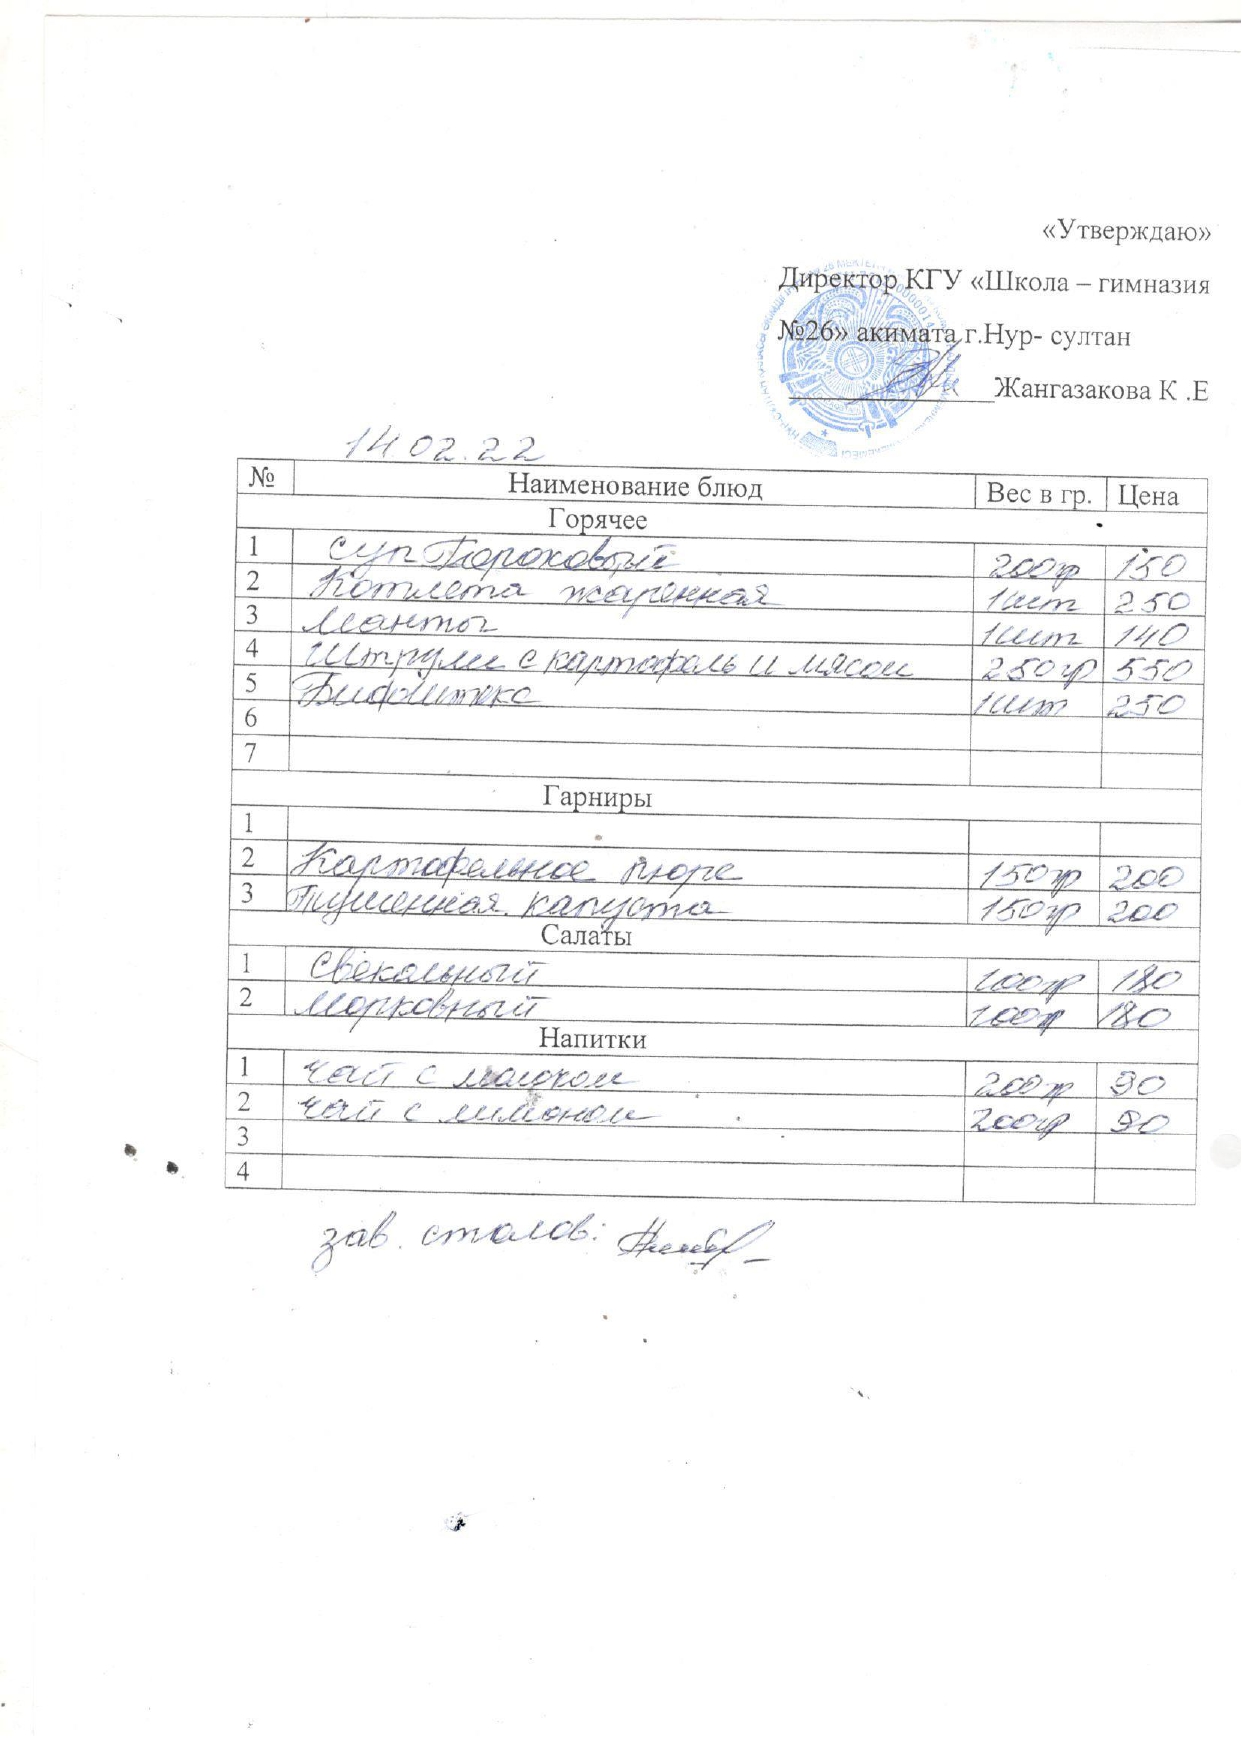 «Утверждаю»
Директор КГУ «Школа – гимназия
№26» акимата г.Нур- султан
Жангазакова К .Е
14.02.22
№ Наименование блюд Вес в гр. Цена
Горячее
1 Суп Гороховый 200гр 150
2 Котлета жаренная 1шт 250
3 Манты 1шт 140
4 Штрули с картофель и мясом 250гр 550
5 Бифштекс 1шт 250
6
7
Гарниры
1
2 Картофельное пюре 150гр 200
3 Тушенная капуста 150гр 200
Салаты
1 Свекольный 100гр 180
2 Морковный 100гр 180
Напитки
1 Чай с молоком 200гр 90
2 Чай с лимоном 200гр 90
3
4
зав. столов: